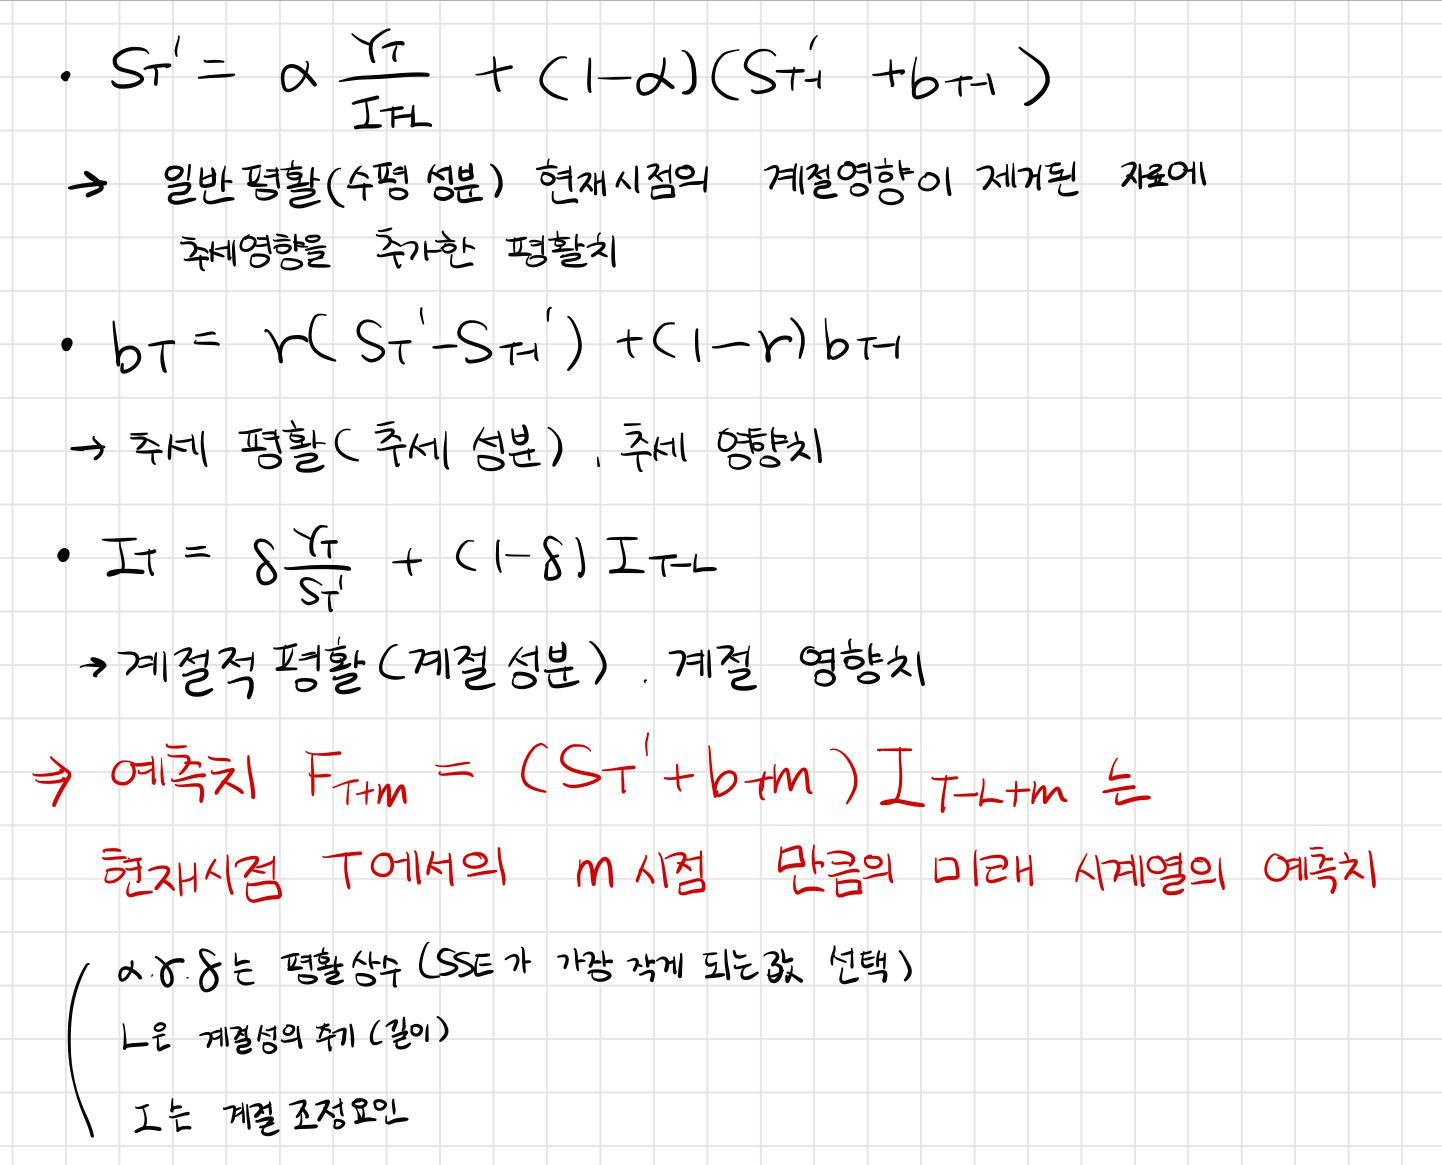 • S_T' = α Y_T / I_{T-L} + (1-α)(S_{T-1}' + b_{T-1})
→ 일반 평활(수평 성분) 현재시점의 계절영향이 제거된 자료에
추세영향을 추가한 평활치
• b_T = r(S_T' - S_{T-1}') + (1-r) b_{T-1}
→ 추세 평활(추세 성분), 추세 영향치
• I_T = δ Y_T / S_T' + (1-δ) I_{T-L}
→ 계절적 평활(계절 성분). 계절 영향치
⇒ 예측치 F_{T+m} = (S_T' + b_{+m}) I_{T-L+m} 는
현재시점 T에서의 m 시점 만큼의 미래 시계열의 예측치
α.γ.δ는 평활상수 (SSE가 가장 작게 되는값 선택)
L은 계절성의 주기 (길이)
I는 계절 조정요인